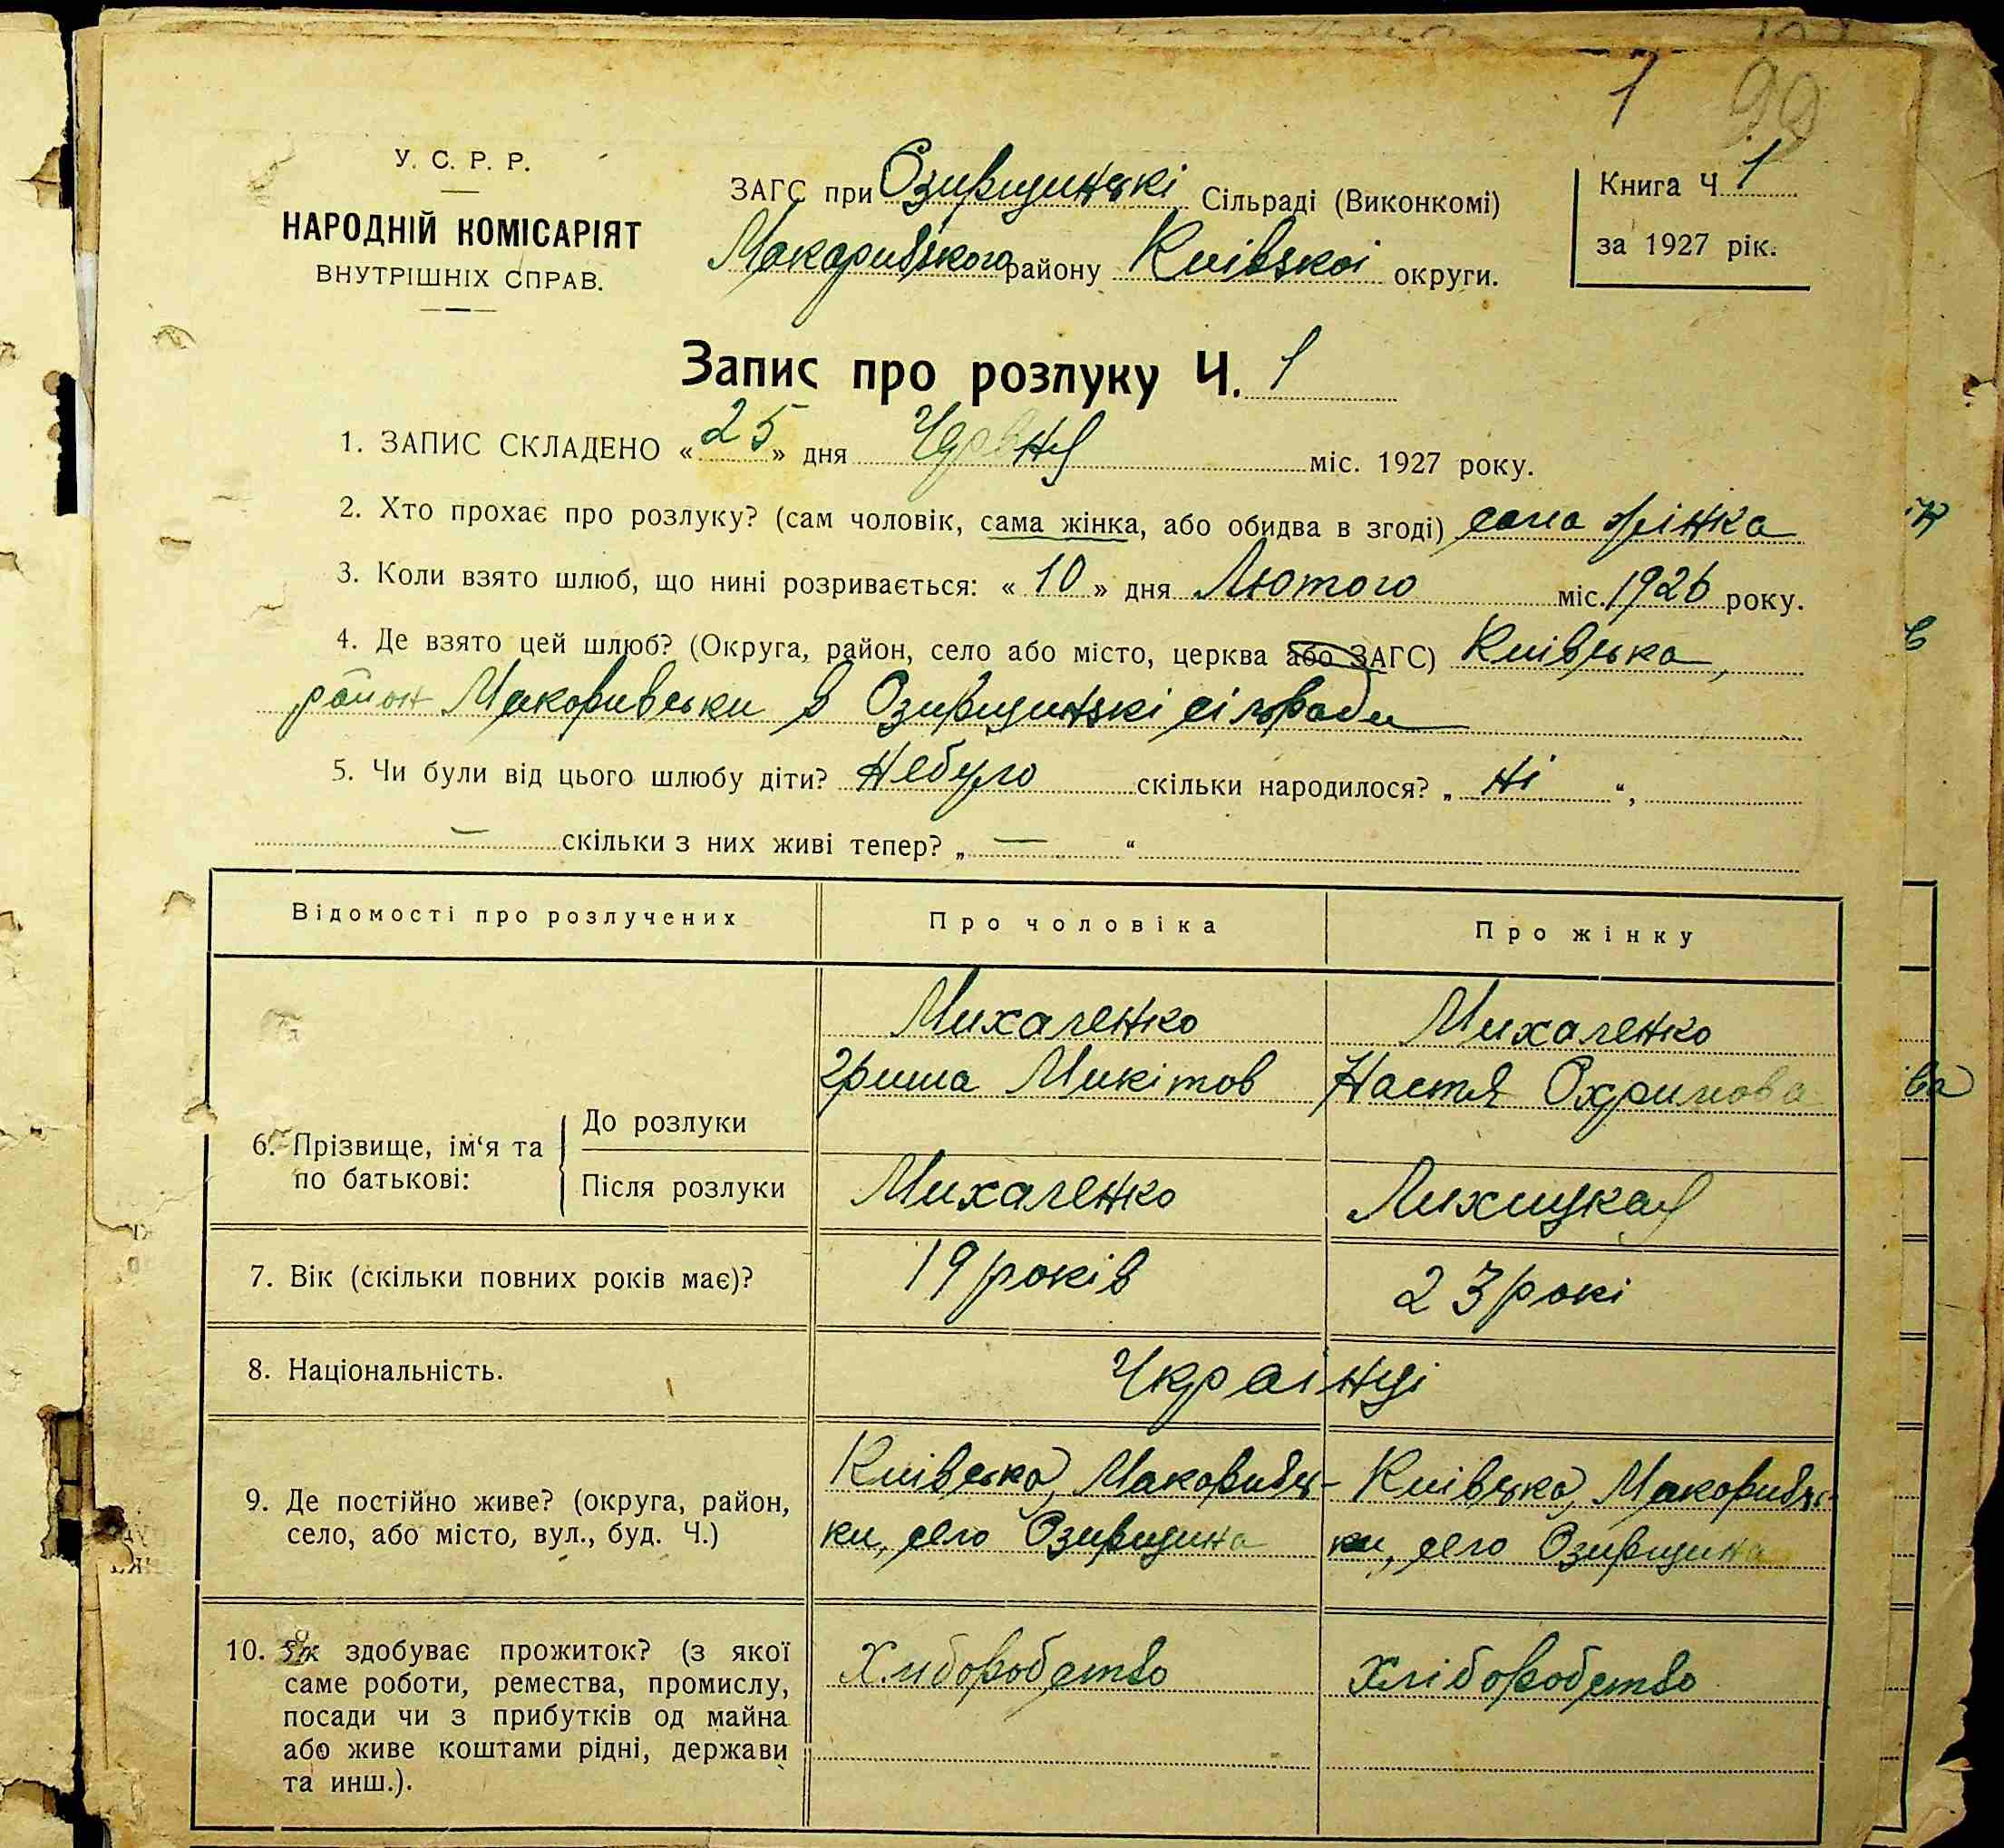 1 99
У. С. Р. Р.
НАРОДНІЙ КОМІСАРІЯТ
ВНУТРІШНІХ СПРАВ.
ЗАГС при Озирщинскі Сільраді (Виконкомі)
Макаривского району Киівскоі округи.
Книга Ч. 1
за 1927 рік.
Запис про розлуку Ч. 1
1. ЗАПИС СКЛАДЕНО « 25 » дня Червня міс. 1927 року.
2. Хто прохає про розлуку? (сам чоловік, сама жінка, або обидва в згоді) сама жінка
3. Коли взято шлюб, що нині розривається: « 10 » дня Лютого міс. 1926 року.
4. Де взято цей шлюб? (Округа, район, село або місто, церква або ЗАГС) Киівська,
район Макоривськи в Озирщинзкі сільради
5. Чи були від цього шлюбу діти? Небуло скільки народилося? „ ні “,
— скільки з них живі тепер? „ — “
Відомості про розлучених Про чоловіка Про жінку
Михаленко Михаленко
Гриша Микітов Настя Охримова
6. Прізвище, ім‘я та по батькові:
До розлуки
Після розлуки Михаленко Лихицкая
7. Вік (скільки повних років має)? 19 років 23 рокі
8. Національність. Украінці
9. Де постійно живе? (округа, район,
село, або місто, вул., буд. Ч.)
Киівська, Макоривсь-
ки, село Озирщина
Киівська, Макоривсь-
ки, село Озирщина
10. Як здобуває прожиток? (з якої
саме роботи, ремества, промислу,
посади чи з прибутків од майна
або живе коштами рідні, держави
та инш.).
Хліборобство Хліборобство